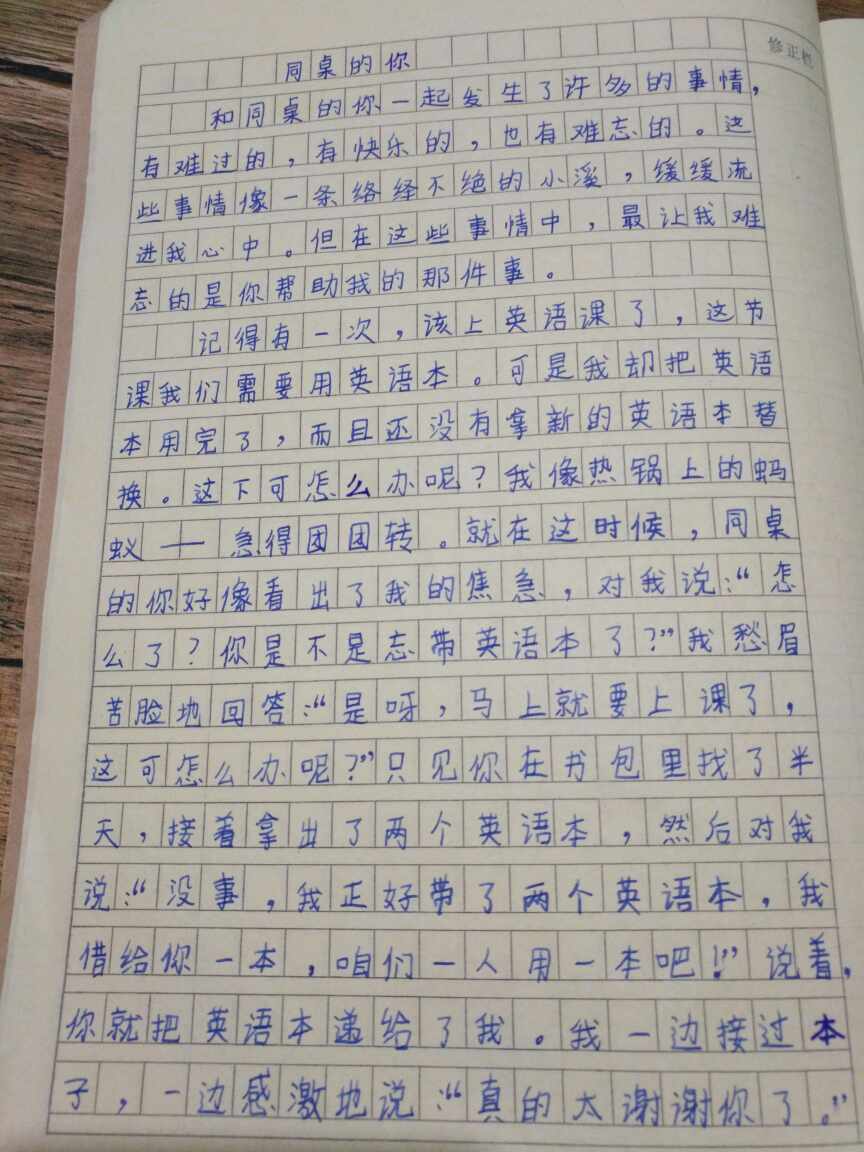 修正栏
同桌的你
和同桌的你一起发生了许多的事情，
有难过的，有快乐的，也有难忘的。这
些事情像一条络绎不绝的小溪，缓缓流
进我心中。但在这些事情中，最让我难
忘的是你帮助我的那件事。
记得有一次，该上英语课了，这节
课我们需要用英语本。可是我却把英语
本用完了，而且还没有拿新的英语本替
换。这下可怎么办呢？我像热锅上的蚂
蚁——急得团团转。就在这时候，同桌
的你好像看出了我的焦急，对我说：“怎
么了？你是不是忘带英语本了？”我愁眉
苦脸地回答：“是呀，马上就要上课了，
这可怎么办呢？”只见你在书包里找了半
天，接着拿出了两个英语本，然后对我
说：“没事，我正好带了两个英语本，我
借给你一本，咱们一人用一本吧！”说着，
你就把英语本递给了我。我一边接过本
子，一边感激地说：“真的太谢谢你了。”